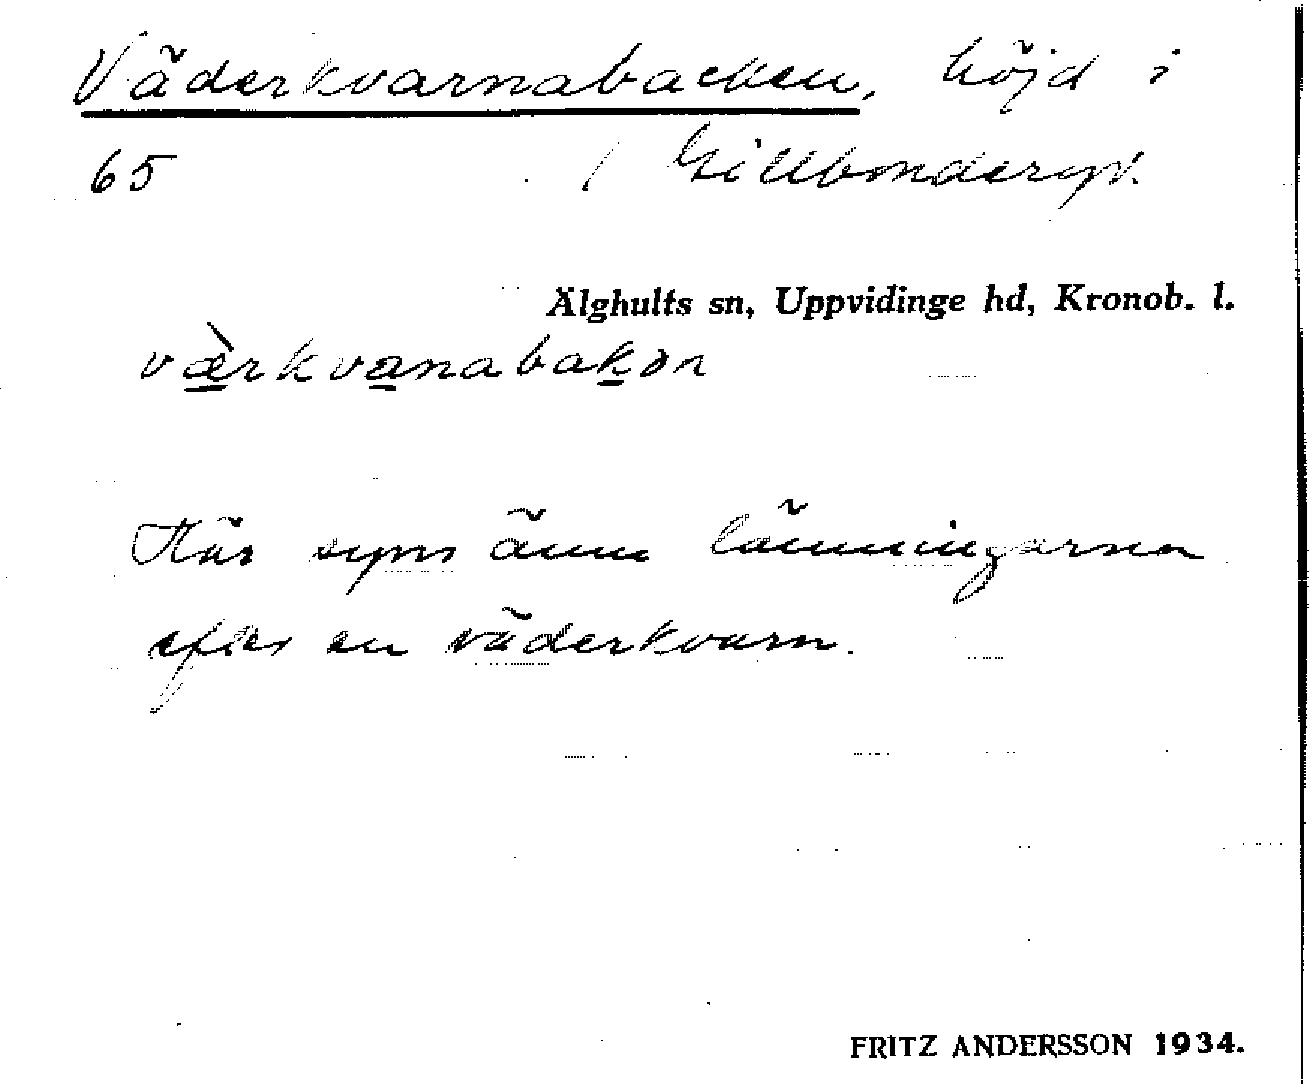 Väderkvarnabacken, höjd i
65 / Gillbonderyd.
Älghults sn, Uppvidinge hd, Kronob. l.
væ̀rkvanabakən
Här syns ännu lämningarna
efter en väderkvarn.
FRITZ ANDERSSON 1934.